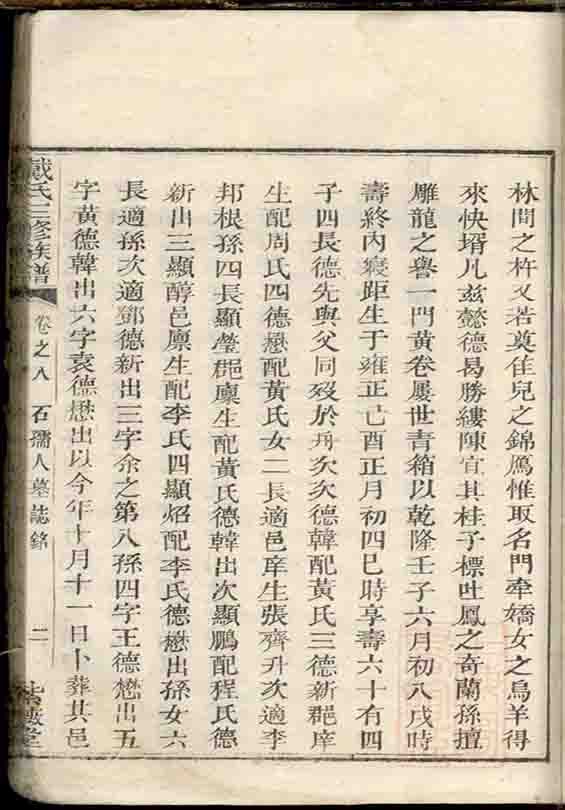 林問之杵又若奠隹兒之錦鴈惟取名門牽嬌女之烏羊得
來快壻凡兹懿德曷勝縷陳宜其桂子標吐鳳之奇蘭孫擅
雕龍之譽一門黃卷屢世青箱以乾隆壬子六月初八戌時
壽終內寢距生于雍正己酉正月初四巳時享壽六十有四
子四長德先與父同歿於舟次次德韓配黃氏三德新郡庠
生配周氏四德懋配黃氏女二長適邑庠生張齊升次適李
邦根孫四長顯瑩郡廩生配黃氏德韓出次顯鵬配程氏德
新出三顯醇邑廩生配李氏四顯炤配李氏德懋出孫女六
長適孫次適鄧德新出三字余之第八孫四字王德懋出五
字黃德韓出六字袁德懋出以今年十月十一日卜葬其邑
戴氏三修族譜 卷之八 石孺人墓誌銘 二